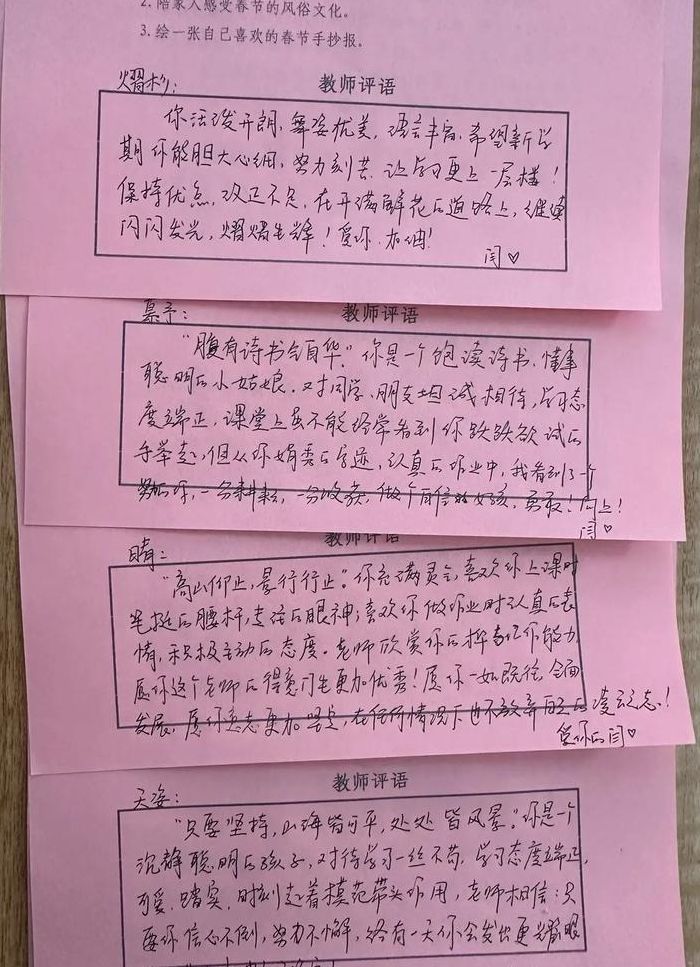 2. 陪家人感受春节的风俗文化。
3. 绘一张自己喜欢的春节手抄报。
熠杉：
教师评语
你活泼开朗，舞姿优美，语言丰富，希望新学
期你能胆大心细，努力刻苦，让学习更上一层楼！
保持优点，改正不足，在开满鲜花的道路上，继续
闪闪发光，熠熠生辉！爱你，加油！
闫♡
慕予：
教师评语
“腹有诗书气自华”你是一个饱读诗书，懂事
聪明的小姑娘，对同学、朋友坦诚相待，学习态
度端正，课堂上虽不能经常看到你跃跃欲试的
手举起，但从你娟秀的字迹，认真的作业中，我看到了一个
努力的你，一分耕耘，一分收获，做个自信的女孩，勇敢！向上！
闫♡
晴：
教师评语
“高山仰止，景行行止”。你充满灵气，喜欢你上课时
笔挺的腰杆，专注的眼神；喜欢你做作业时认真的表
情，积极主动的态度。老师欣赏你的工作能力，
愿你这个老师的得意门生更加优秀！愿你一如既往，全面
发展，愿你意志更加坚定，在任何情况下也不放弃自己的凌云之志！
爱你的闫♡
天姿：
教师评语
“只要坚持，山海皆可平，处处皆风景。”你是一个
沉静聪明的孩子，对待学习一丝不苟，学习态度端正，
可爱、踏实，时刻起着模范带头作用，老师相信：只
要你信心不倒，努力不懈，终有一天你会发出更耀眼